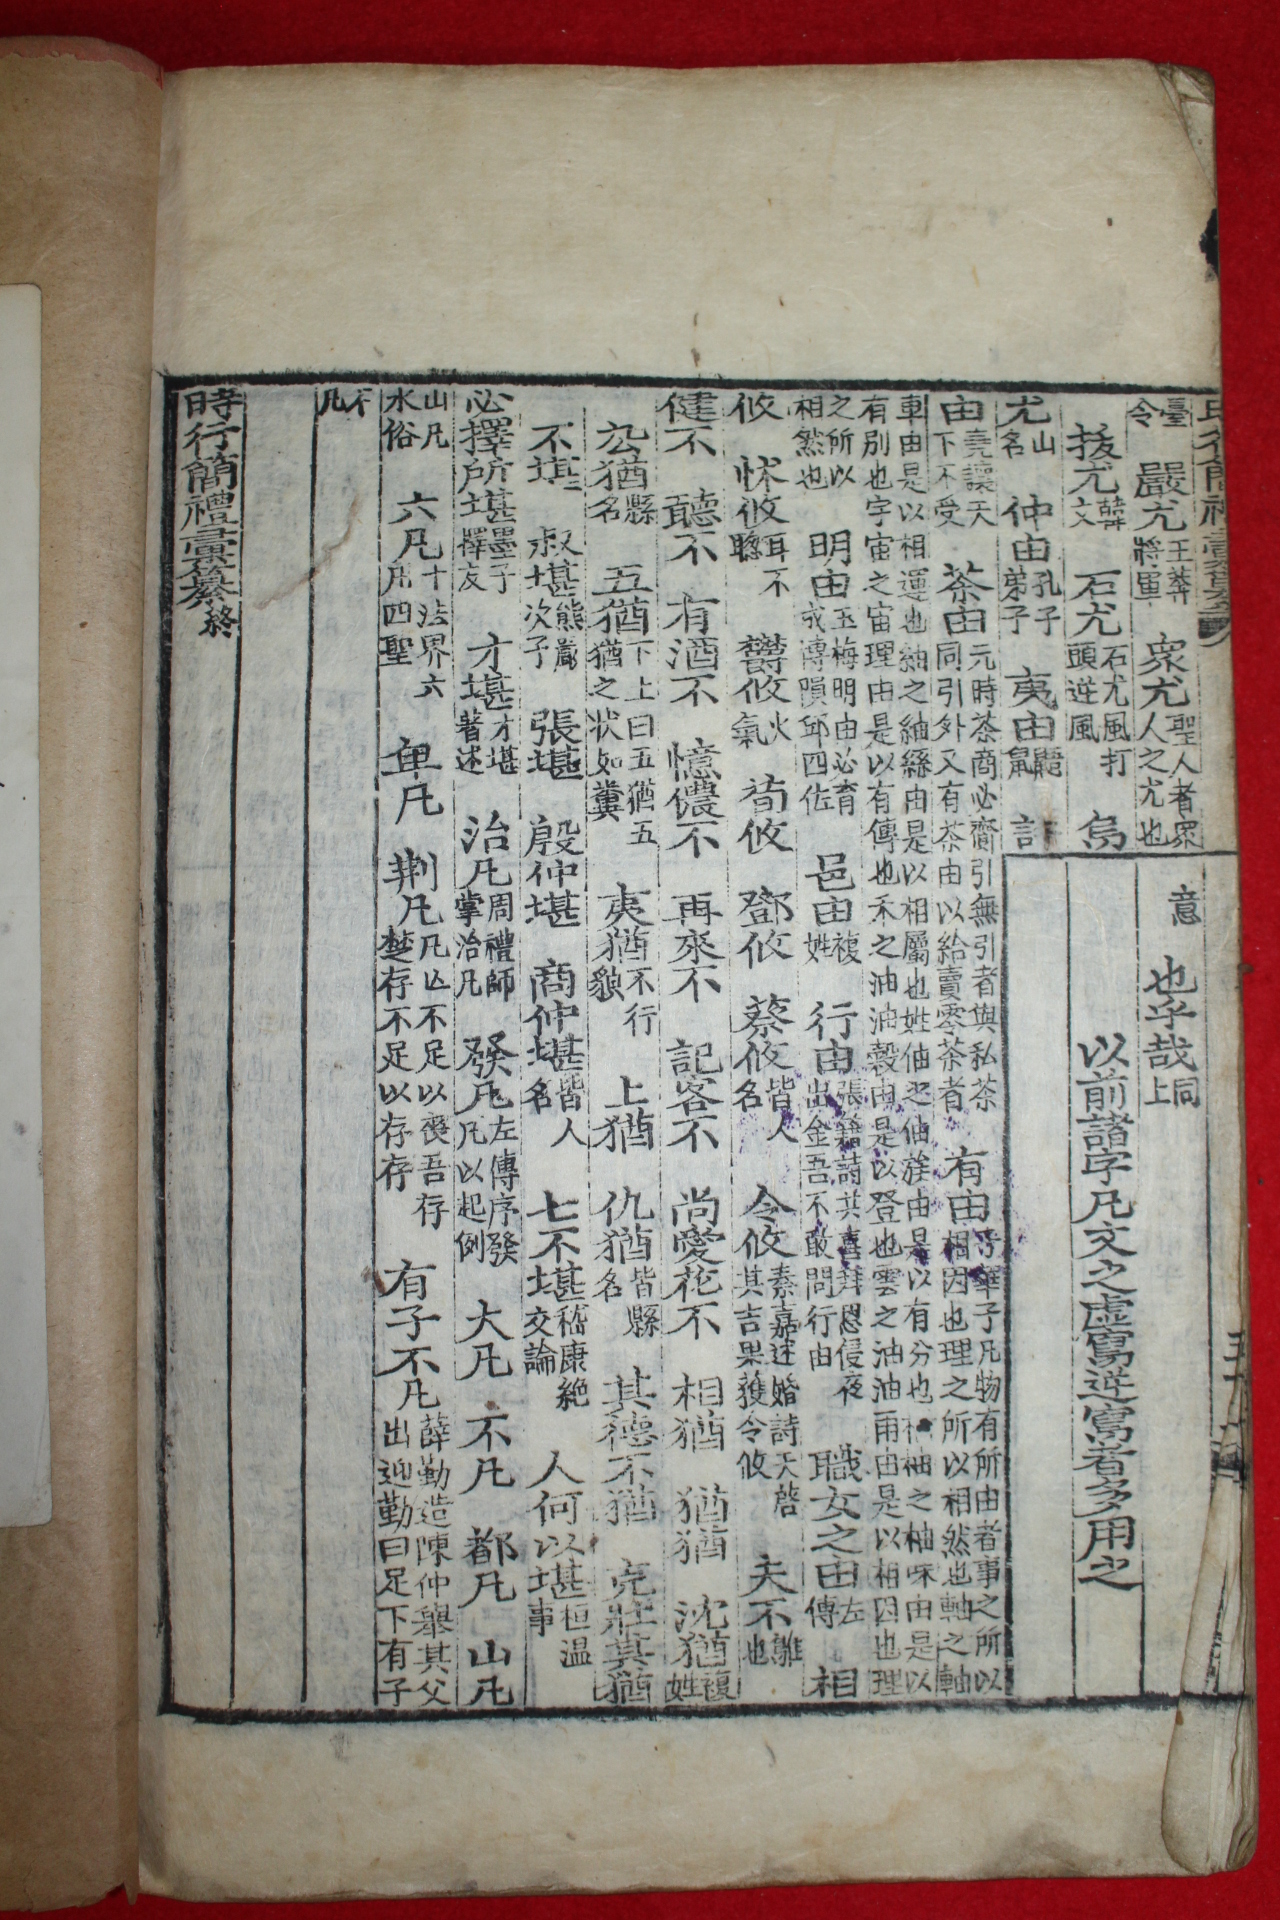 臺令 嚴尤王莽將軍 衆尤聖人者衆人之尤也
意 也乎哉同上
拔尤韓文 石尤石尤風打頭逆風 烏
以前諸字凡文之虛寫逆寫者多用之
尤山名 仲由孔子弟子 夷由鼯鼠 許
由堯讓天下不受 茶由元時茶商必齎引無引者與私茶同引外又有茶由以給賣零茶者 有由子華子凡物有所由者事之所以相因也理之所以相然也軸之軸
車由是以相運也紬之紬絲由是以相屬也姓伷之伷族由是以有分也柚之柚味由是以有別也字宙之宙理由是以有傳也禾之油油穀由是以登也雲之油油雨由是以相因也理
之所以相然也 明由玉梅明由必育成傅隕邱四佐 邑由複姓 行由張籍詩共喜拜恩侵夜出金吾不敢問行由 職女之由左傳 相
攸 怵攸耳不聰 鬱攸火氣 荀攸 鄧攸 蔡攸皆人名 令攸秦嘉述婚詩天啓其吉果獲令攸 夫不鵻也
健不 聽不 有酒不 憶儂不 再來不 記客不 尚愛花不 相猶 猶猶 沈猶複姓
公猶縣名 五猶下上曰五猶五猶之狀如糞 夷猶不行貌 上猶 仇猶皆縣名 其德不猶 克壯其猶
不堪 叔堪熊嚴次子 張堪 殷仲堪 商仲堪皆人名 七不堪嵇康絶交論 人何以堪桓温事
必擇所堪墨子擇友 才堪才堪著述 治凡周禮師掌治凡 發凡左傳序發凡以起例 大凡 不凡 都凡 山凡
山凡水俗 六凡十法界六凡四聖 卑凡 荆凡凡亾不足以喪吾存楚存不足以存存 有子不凡薛勤造陳仲擧其父出迎勤曰足下有子
不凡
時行簡禮彙纂終